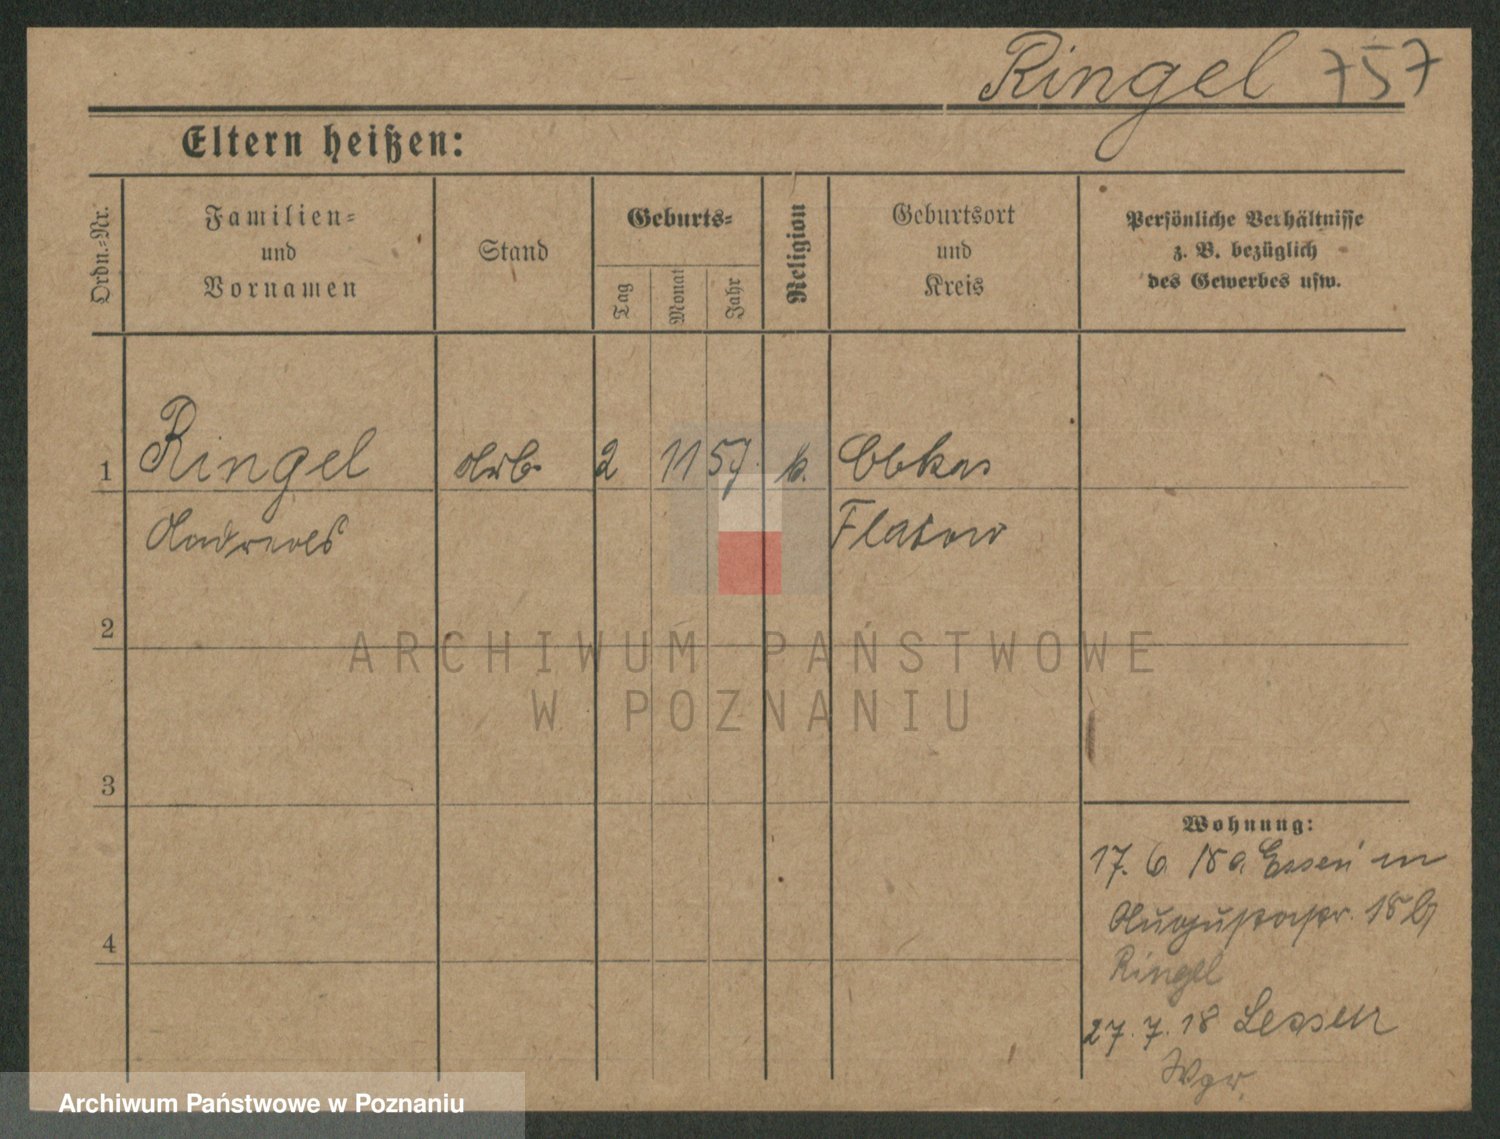 Ringel 757
Eltern heißen:
Ordn.-Nr.
Familien-
und
Vornamen
Stand
Geburts-
Tag
Monat
Jahr
Religion
Geburtsort
und
Kreis
Persönliche Verhältnisse
z. B. bezüglich
des Gewerbes usw.
1 Ringel Arb. 2 11 57. k. Obkas
Andreas Flatow
2
3
4
ARCHIWUM PAŃSTWOWE
W POZNANIU
Wohnung:
17. 6. 18 a. Essen in
Augustastr. 18
Ringel
27. 7. 18 Lessen
Wpr.
Archiwum Państwowe w Poznaniu